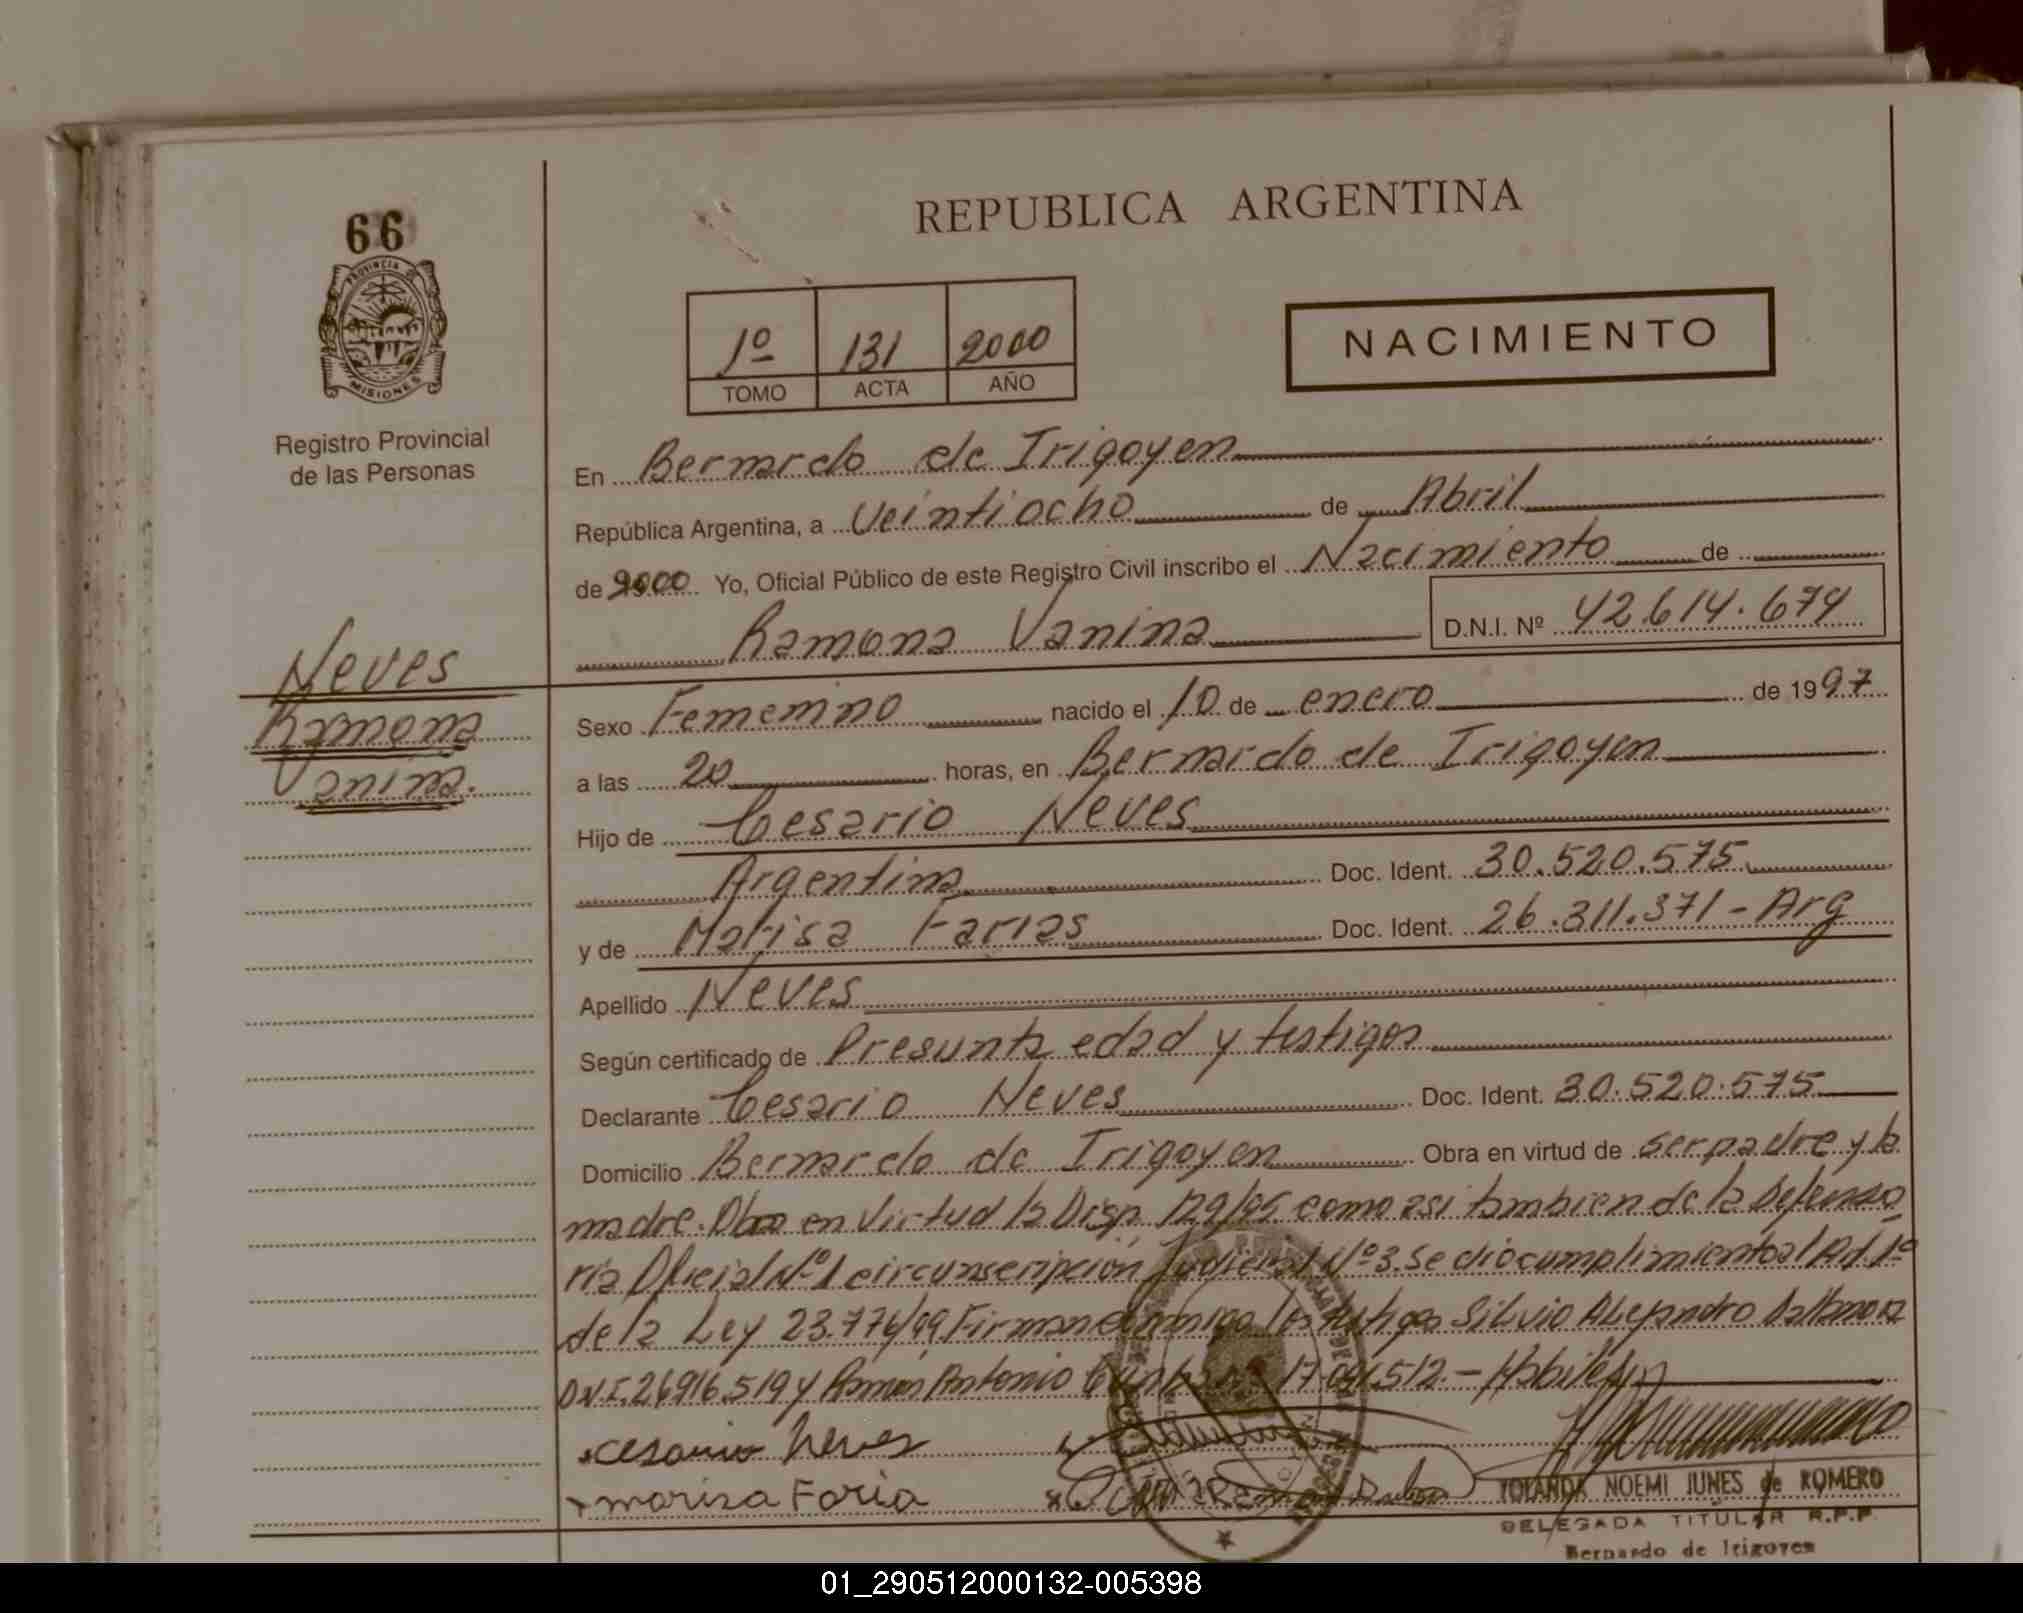 66
PROVINCIA DE
MISIONES
Registro Provincial
de las Personas
REPUBLICA ARGENTINA
1º 131 2000
TOMO ACTA AÑO
NACIMIENTO
En Bernardo de Irigoyen
República Argentina, a Veintiocho de Abril
de 2000 Yo, Oficial Público de este Registro Civil inscribo el Nacimiento de
Ramona Vanina D.N.I. Nº 42.614.674
Neves
Ramona
Vanina.
Sexo Femenino nacido el 10 de enero de 1997
a las 20 horas, en Bernardo de Irigoyen
Hijo de Cesario Neves
Argentina Doc. Ident. 30.520.575
y de Marisa Farias Doc. Ident. 26.311.371 - Arg
Apellido Neves
Según certificado de Presunta edad y testigos
Declarante Cesario Neves Doc. Ident. 30.520.575
Domicilio Bernardo de Irigoyen Obra en virtud de ser padre y la
madre. Obra en Virtud la Disp. 129/95 como asi tambien de la Defenso
ria Oficial Nº 1 circunscripción Judicial Nº 3. Se dio cumplimiento al Art. 1º
de la Ley 23.776/99. Firman conmigo los testigos Silvio Alejandro
D.N.I. 26916.519 y Ramon Antonio 512.-
cesario neves
marisa Faria
YOLANDA NOEMI JUNES de ROMERO
DELEGADA TITULAR R.P.P.
Bernardo de Irigoyen
01_290512000132-005398